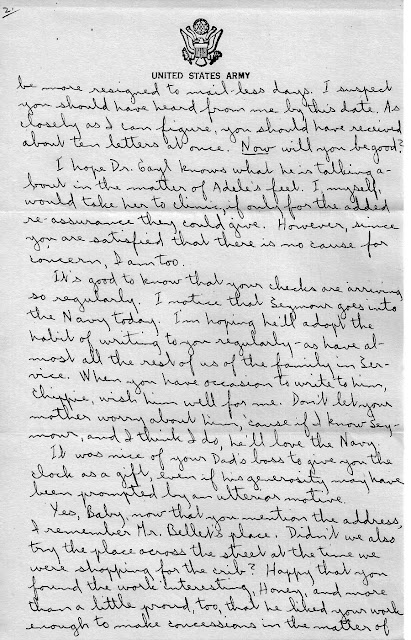 2.
UNITED STATES ARMY
be more resigned to mail-less days. I suspect
you should have heard from me by this date. As
closely as I can figure, you should have received
about ten letters at once. Now will you be good?
I hope Dr. Gayl knows what he is talking a-
bout in the matter of Adele's feet. I, myself,
would take her to clinic, if only for the added
re-assurance they could give. However, since
you are satisfied that there is no cause for
concern, I am too.
It's good to know that your checks are arriving
so regularly. I notice that Seymour goes into
the Navy today. I'm hoping he'll adopt the
habit of writing to you regularly - as have al-
most all the rest of us of the family in Ser-
vice. When you have occasion to write to him,
Chippie, wish him well for me. Don't let your
mother worry about him, 'cause if I know Sey-
mour, and I think I do, he'll love the Navy.
It was nice of your Dad's boss to give you the
clock as a gift, even if his generosity may have
been prompted by an ulterior motive.
Yes, Baby, now that you mention the address,
I remember Mr. Bellet's place. Didn't we also
try the place across the street at the time we
were shopping for the crib? Happy that you
found the work interesting, Honey, and more
than a little proud, too, that he liked your work
enough to make concessions in the matter of